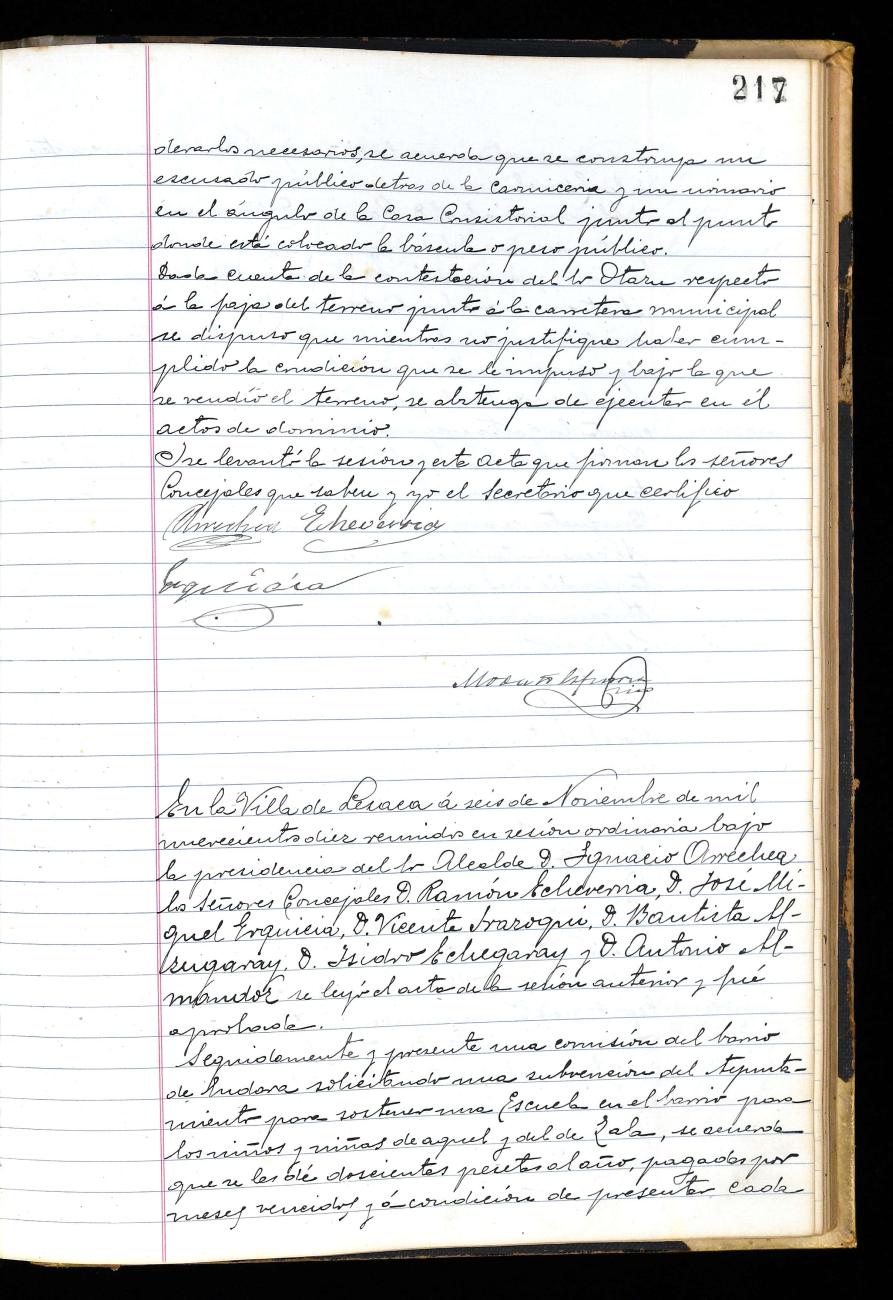 217
derarlos necesarios, se acuerda que se construya un
escusado público detras de la carniceria y un urinario
en el ángulo de la Casa Consistorial junto al punto
donde está colocado la báscula o peso público.
Dada cuenta de la contestación del Sr Otazu respecto
á la faja del terreno junto á la carretera municipal
se dispuso que mientras no justifique haber cum-
plido la condición que se le impuso y bajo la que
se vendió el terreno, se abstenga de ejecutar en él
actos de dominio.
Y se levantó la sesión y esta acta que firman los señores
Concejales que saben y yo el Secretario que certifico
Arrechea Echeverria
Erquicia
En la Villa de Lesaca á seis de Noviembre de mil
nuevecientos diez reunidos en sesión ordinaria bajo
la presidencia del Sr Alcalde D. Ignacio Arrechea
los Señores Concejales D. Ramón Echeverria, D. José Mi-
guel Erquicia, D. Vicente Irazoqui, D. Bautista Al-
zugaray, D. Isidro Echegaray y D. Antonio Al-
mándoz se leyó el acta de la sesión anterior y fué
aprobada.
Seguidamente y presente una comisión del barrio
de Endara solicitando una subvención del Ayunta-
miento para sostener una Escuela en el barrio para
los niños y niñas de aquel y del de Zala, se acuerda
que se les dé doscientas pesetas al año, pagadas por
meses vencidos y á condición de presentar cada